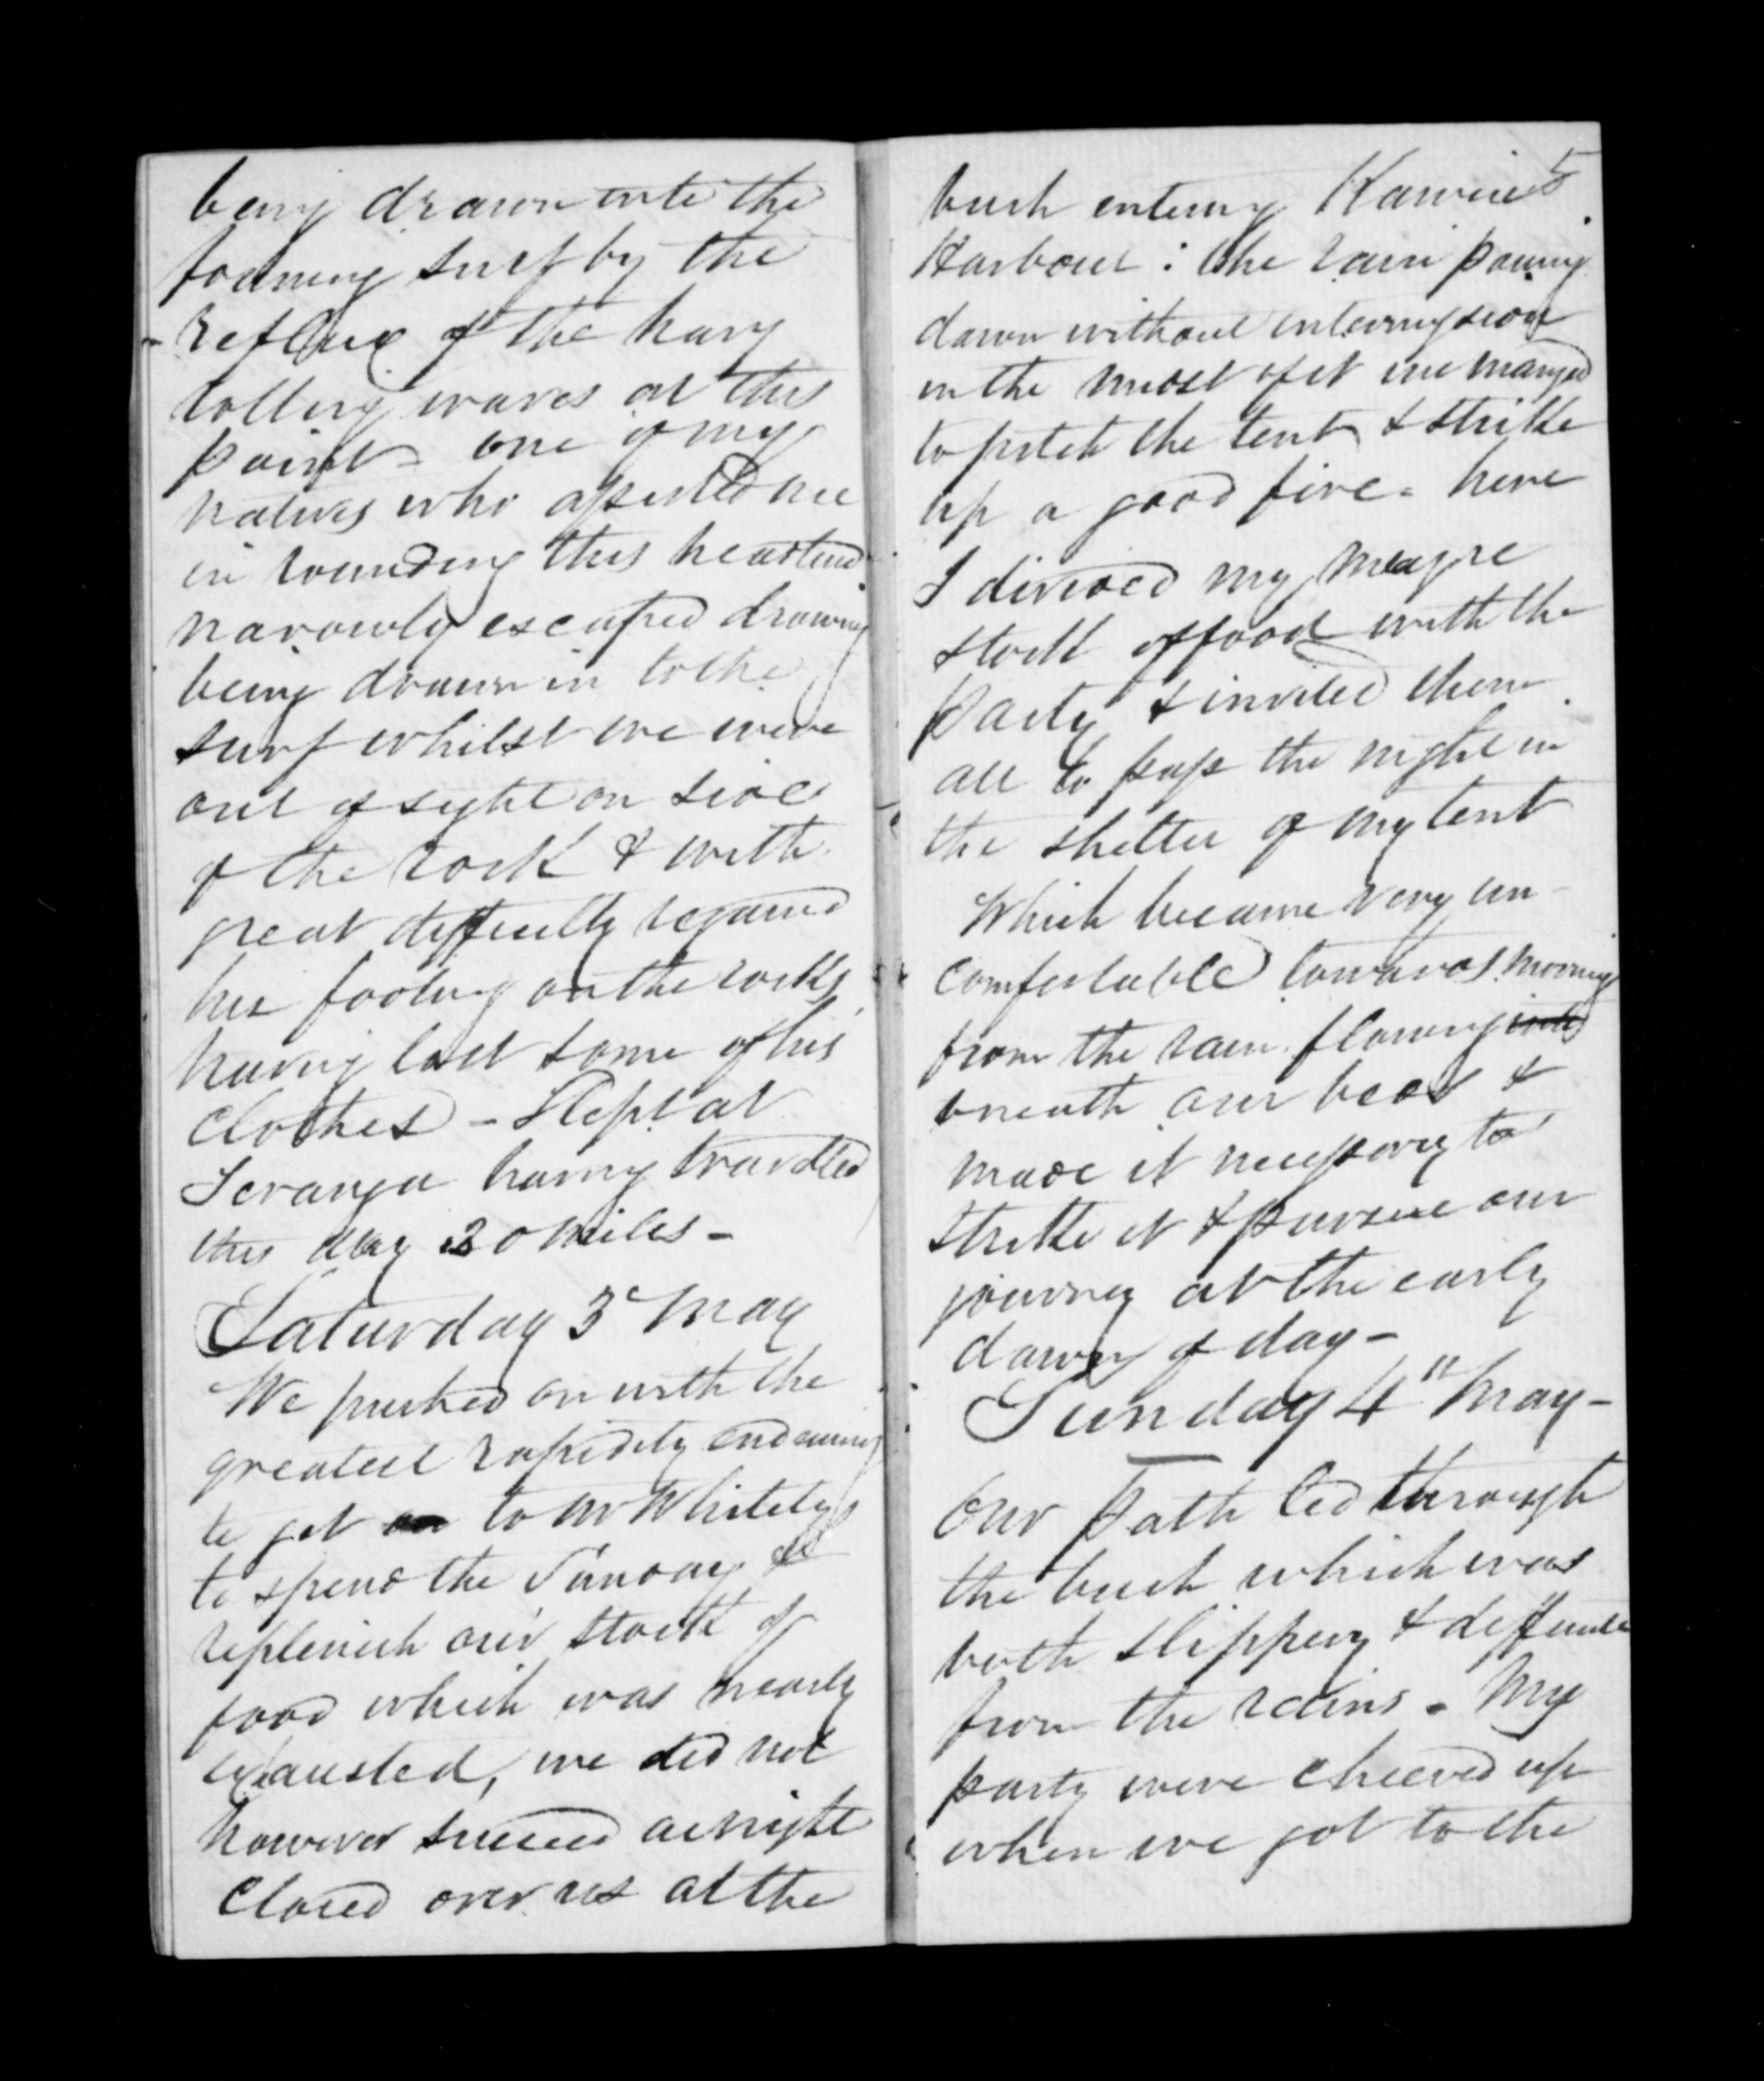 being drawn into the
foaming surf by the
reflux of the havy
rolling waves at this
point - one of my
natives who assisted me
in rounding this headland
narowly escaped drowning
being drawn in to the
surf whilst we were
out of sight on side
of the rock & with
great difficulty regained
his footing on the rocks
having lost some of his
clothes - Slept at
having travelled
this day 20 miles -
Saturday 3d May
We pushed on with the
greatest rapidity
to get on to Mr Whitelys
to spend the Sunday &
replenish our stock of
food which was nearly
exhausted, we did not
however succeed as night
closed over us at the
5
bush entering
Harbour : the rain pouring
down without intermission
in the midst of it we manged
to pitch the tent & strike
up a good fire - here
I divided my meagre
stock of food with the
party & invited them
all to pass the night in
the shelter of my tent
Which became very un-
comfortable towards morning
from the rain flowing into
beneath our beds &
made it necessary to
strike it & pursue our
journey at the early
dawn of day -
Sunday 4th May -
Our path led through
the bush which was
both slippery & difficult
from the rains - My
party were cheered up
when we got to the